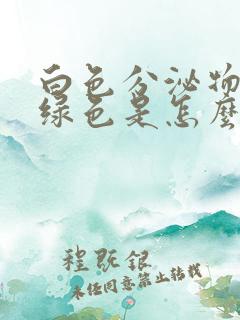 白色分泌物
绿色是怎麽
程既银
未经同意禁止转载